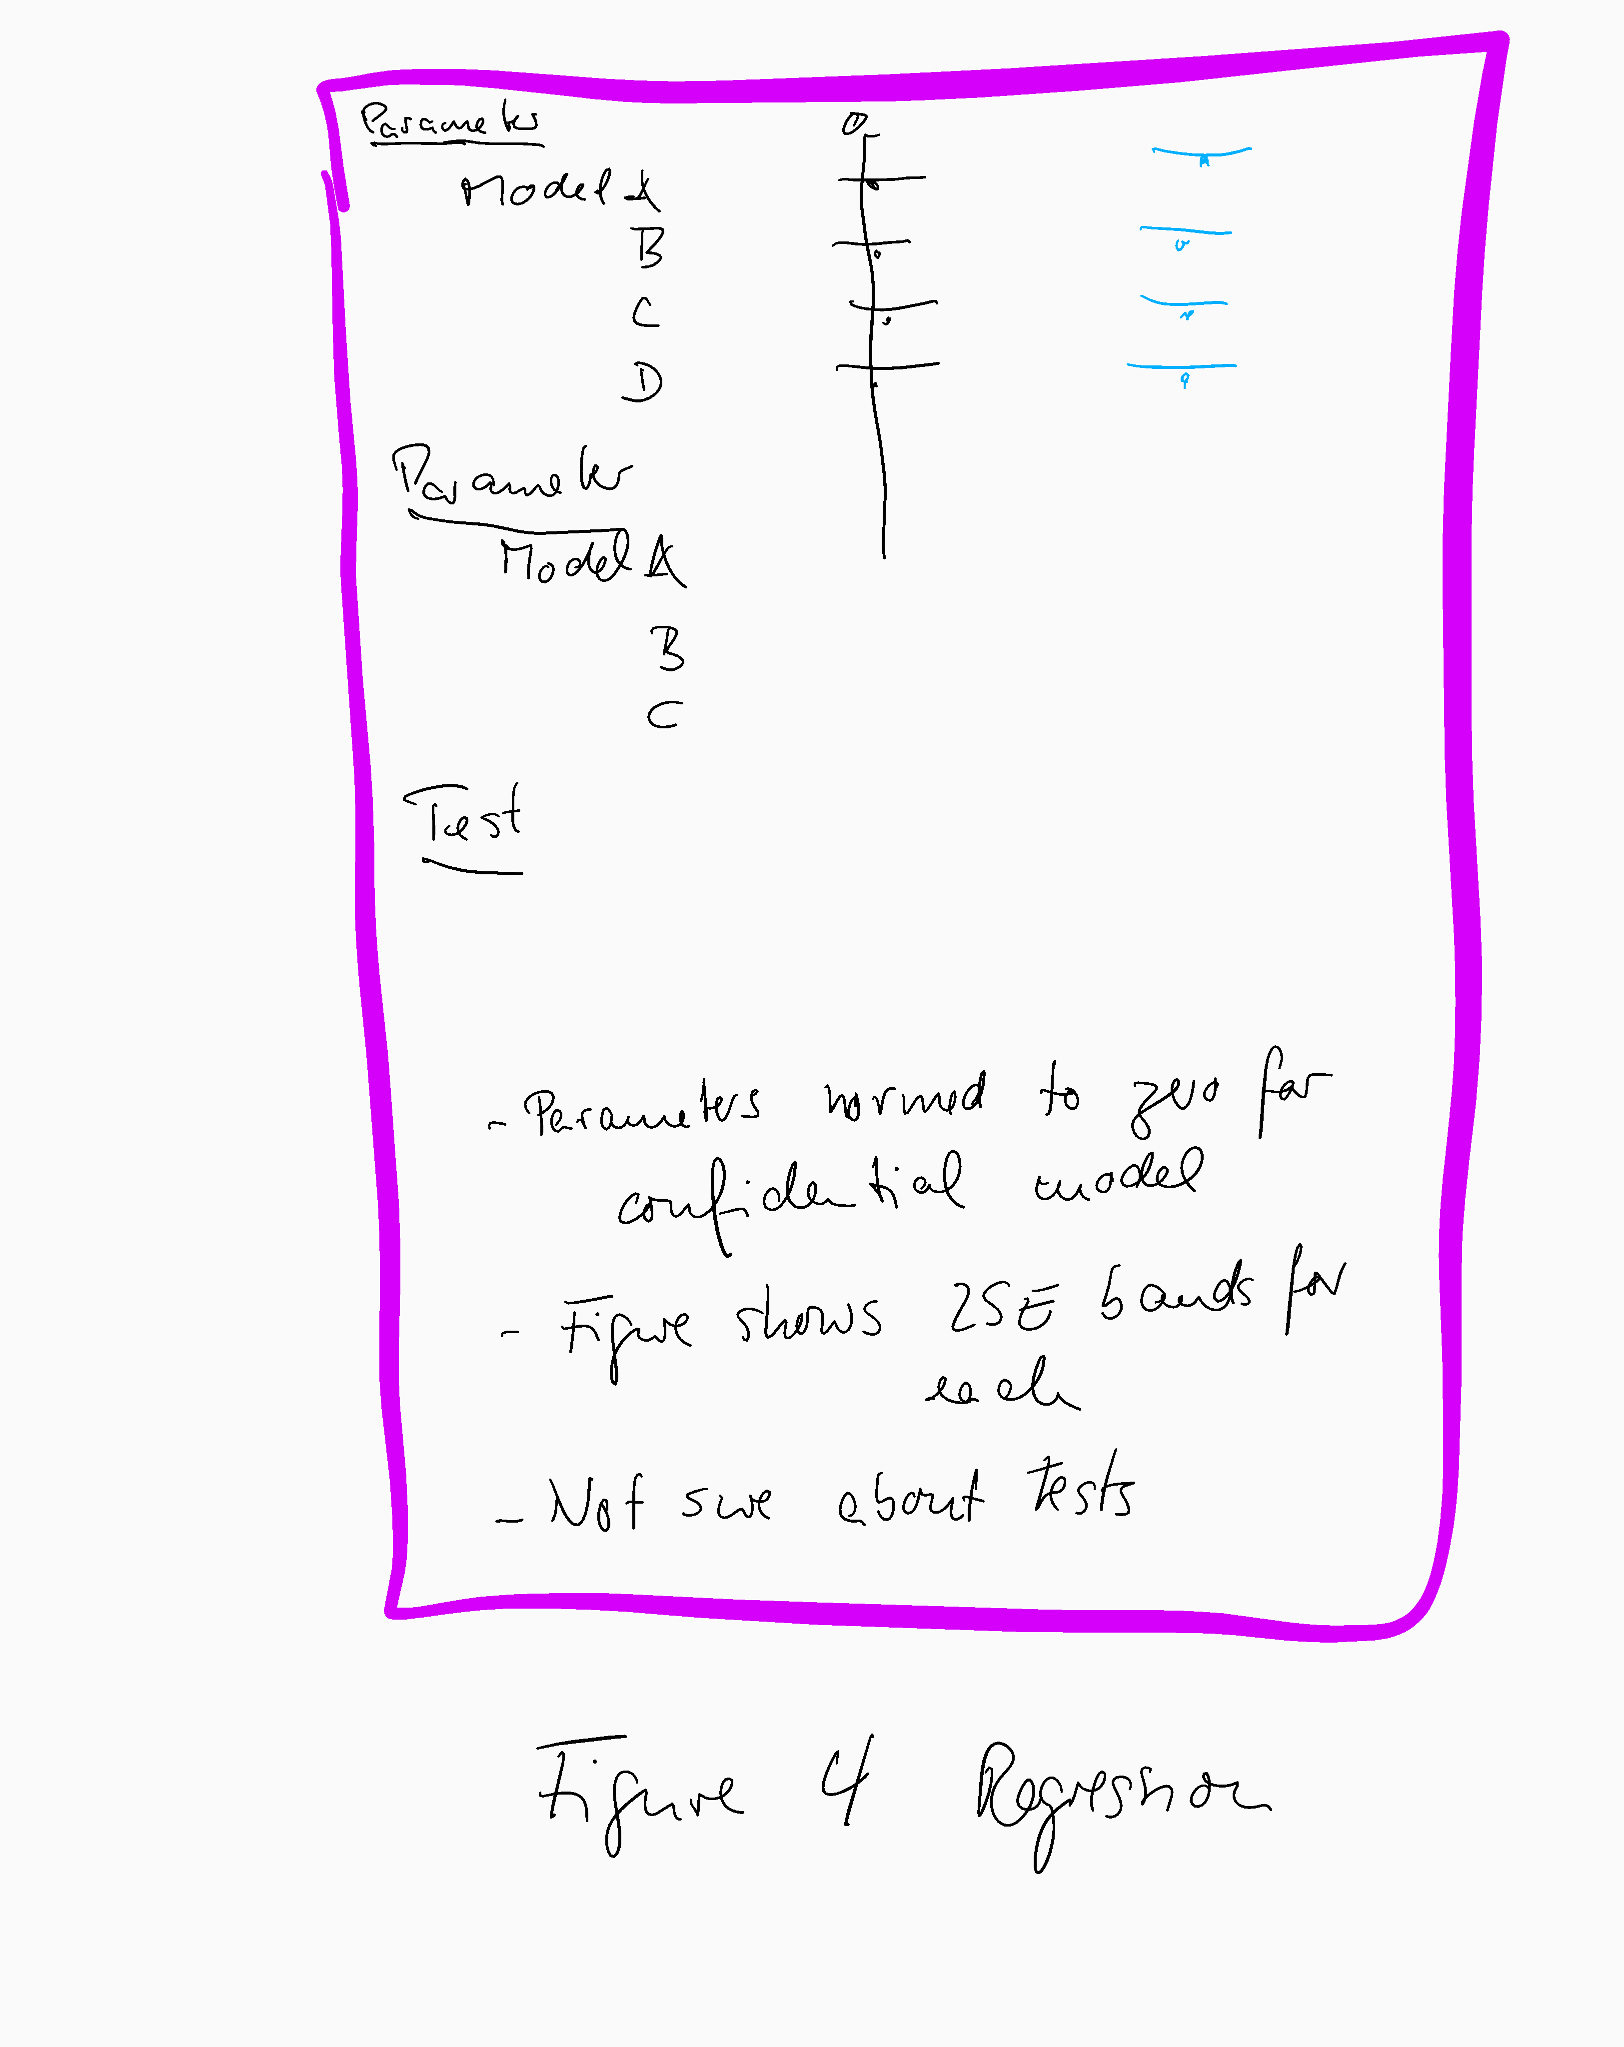 Parameter
0
Model A
B
C
D
Parameter
Model A
B
C
Test
- Parameters normed to zero for
confidential model
- Figure shows 2SE bands for
each
- Not sure about tests
Figure 4 Regression